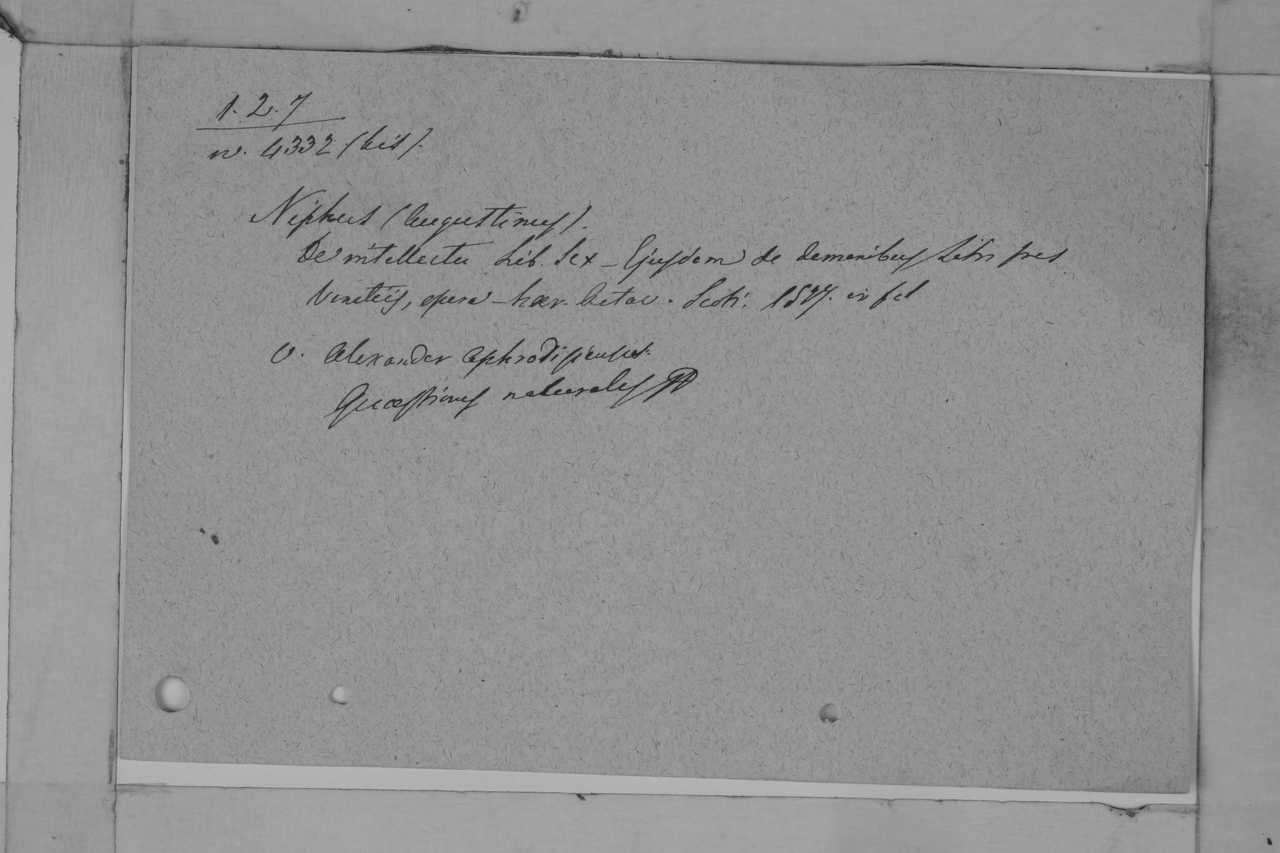 1. 2. 7
n. 4332 (bis).
Niphus (Augustinus).
De intellectu Lib. Sex - Ejusdem de demonibus Libri tres
Venetijs, opera - hær. Octav. Scoti. in fol
V. Alexander Aphrodisiensis.
Quæstiones naturales